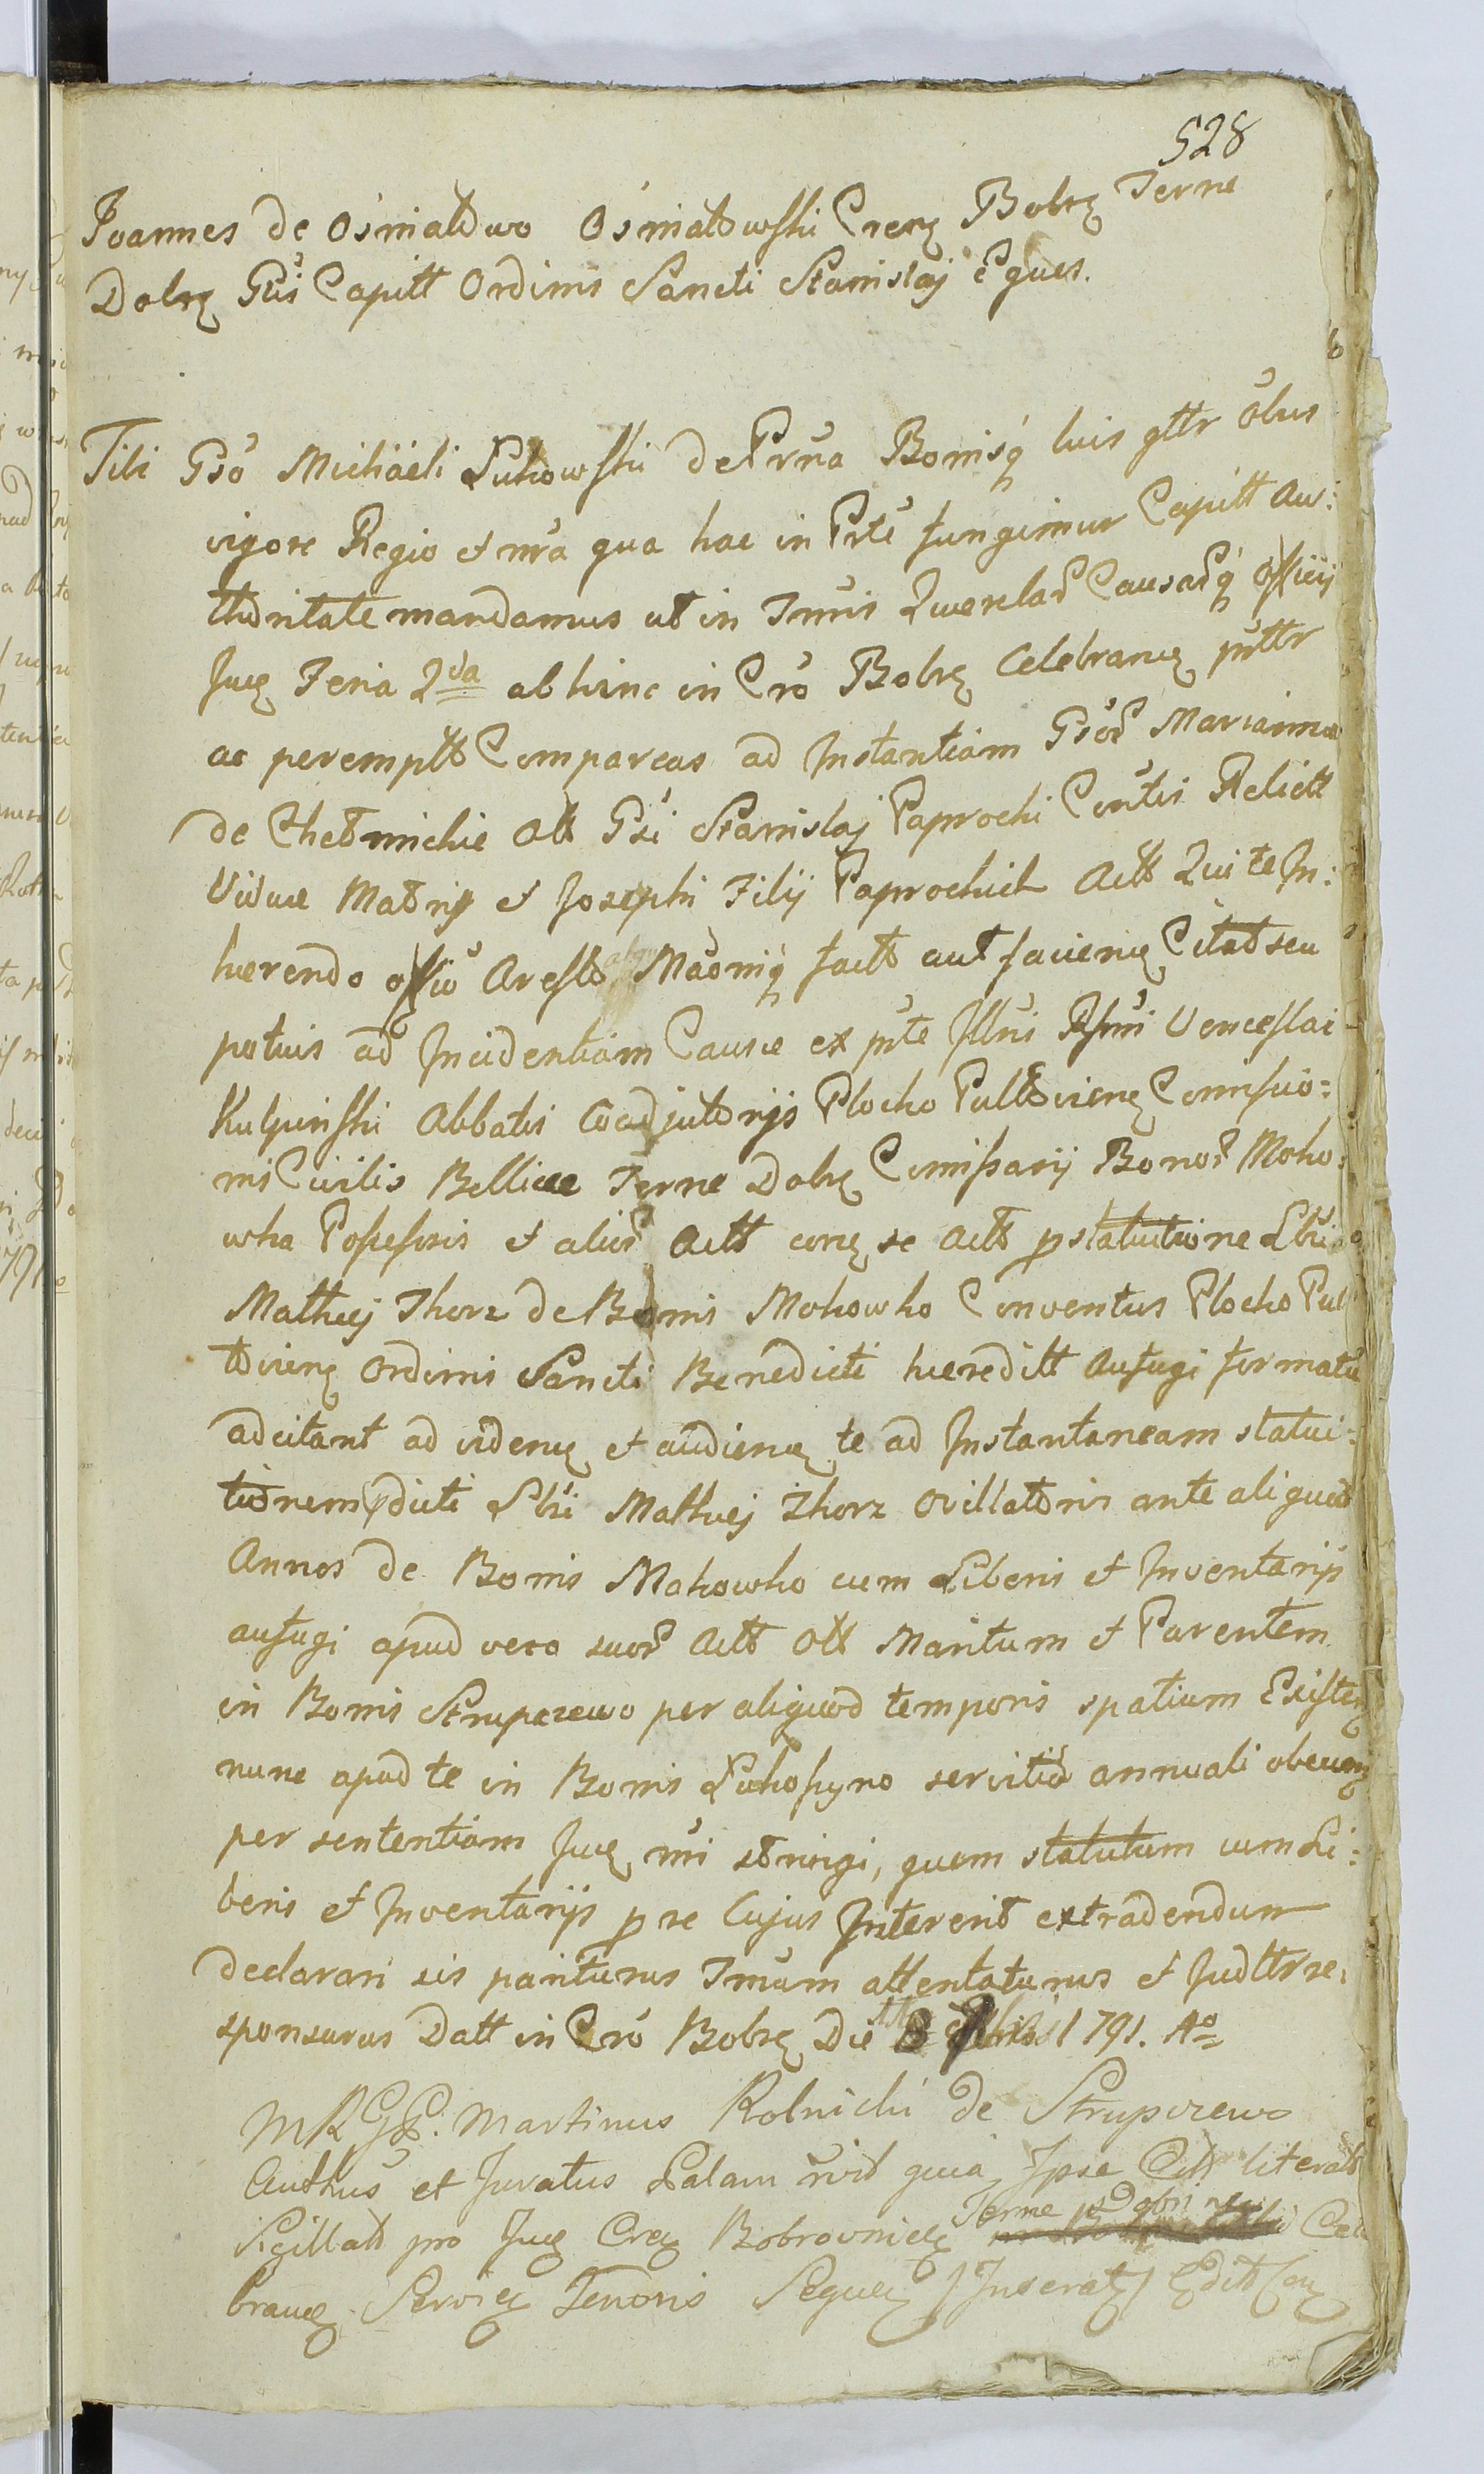 528
Joannes de Osmiałowo Osmiałowski Crens Bobrs Terræ
Dobrs Glis Capitt Ordinis Sancti Stanislaj Eques.
Tibi Gso Michäeli Łukowski de Prna Bonisq tuis gttr õbus
vigore Regio et nra qua hac in Prte fungimur Capitt Au:
thoritate mandamus ut in Tmis Querelar Causarq Officij
Juq Feria 2da abhinc in Cro Bobrs Celebranq prttr
ac perempto Compareas ad Instantiam Gsor Mariannæ
de Chełmickie Olt Gsi Stanislaj Paprocki Contis Relictt
Viduæ Matris et Josephi Filij Paprockich Actt Qui te In:
hærendo offio Aresto Maoniq factt aut facienq Citat seu
potius ad Incidentiam Causæ ex prte Illris Rssmi Venceslai
Abbatis Coadjutoris Plocko Pultoviens Comissio:
nis Civilis Bellicæ Terræ Dobrs Comissarij Bonor Moko:
wko Possessoris et alior Actt conq se Actt p statuitione Lbri
Mathej Thorz de Bonis Mokowko Conventus Plocko Pul
toviens Ordinis Sancti Benedicti hæreditt Aufugi formatū
adcitant ad videnq et audienq te ad Instantaneam statui:
tionem pdicti Lbri Mathej Thorz Ovillatoris ante aliquod
Annos de Bonis Mokowko cum Liberis et Inventarijs
aufugi apud vero suor Actt Olt Maritum et Parentem
in Bonis Strupczewo per aliquod temporis spatium Existen
nunc apud te in Bonis servitio annuali obeunq
per sententiam Juq nri stringi, quem statutum cum Li:
beris et Inventarijs p re Cujus Intererit extradendum
declarari sis pariturus Tmum attentaturus et Judttr re:
sponsurus Datt in Cro Bobrs Die 1791. Ao
MRGG. Martinus Rolnicki de Strupczewo
Authus et Juratus Palam rvit quia Ipse literatt
Sigillatt pro Juq Creq Bobrovnicq Terræ Dobrinen Cele
branq Tenoris Sequeq Inserat